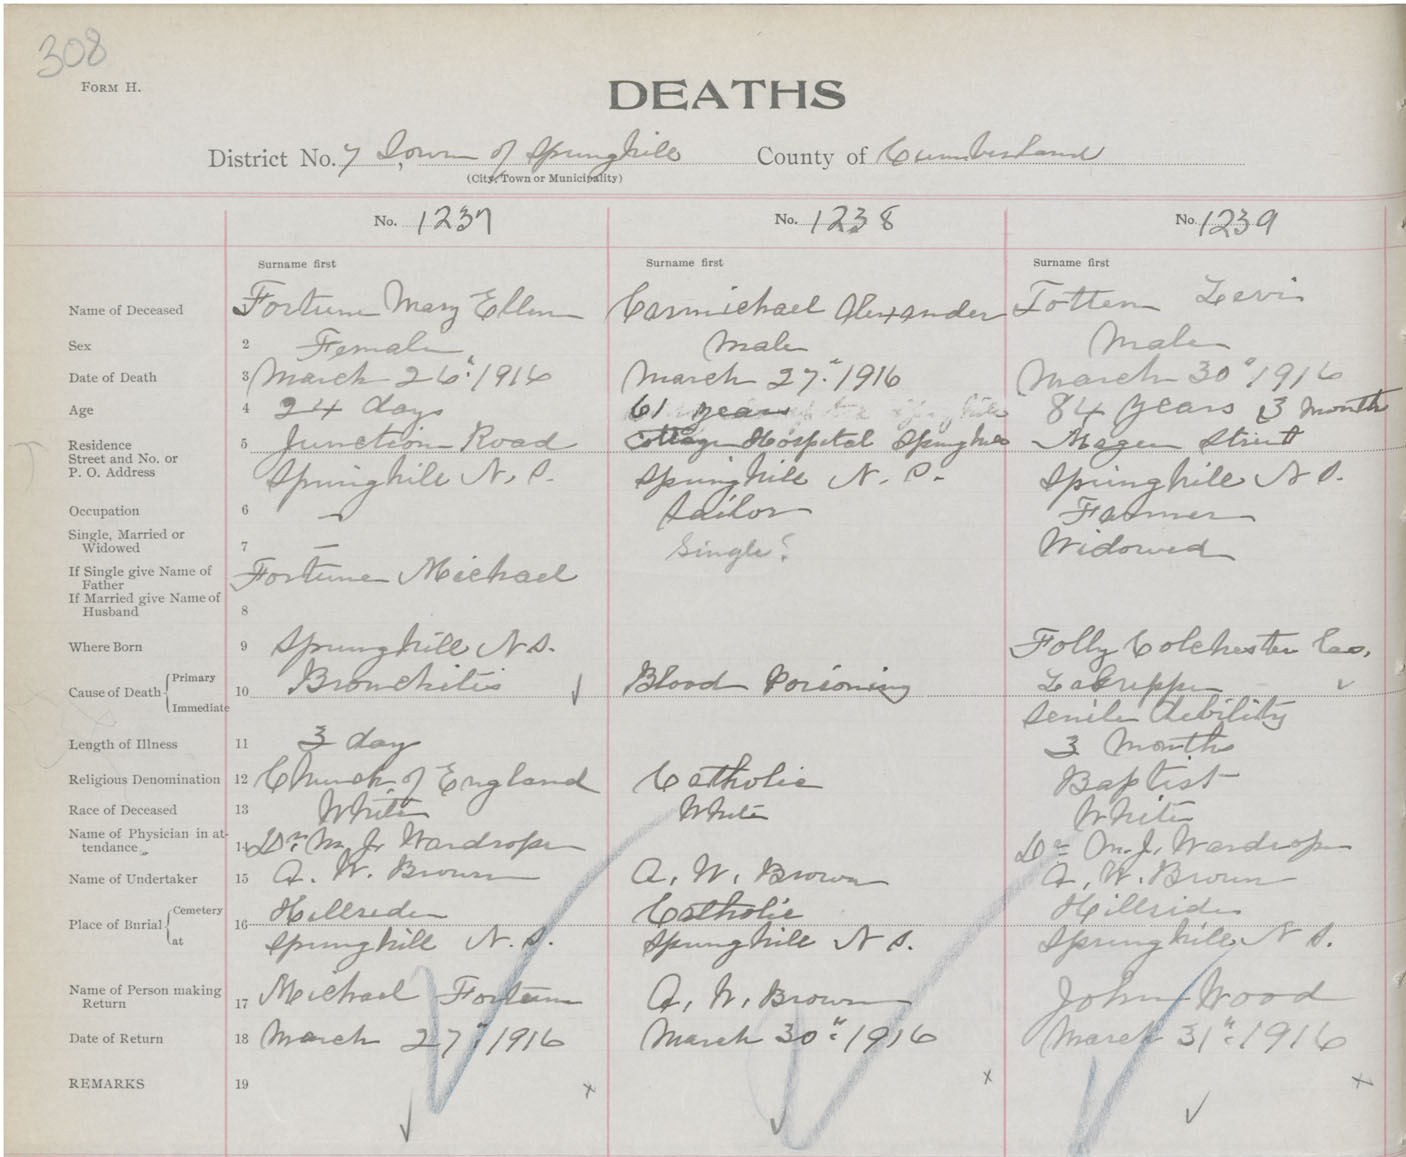 308
FORM H.
DEATHS
District No. 7 Town of Springhill County of Cumberland
(City, Town or Municipality)
No. 1237 No. 1238 No. 1239
Surname first Surname first Surname first
Name of Deceased 1 Fortune Mary Ellen Carmichael Alexander Totten Levi
Sex 2 Female Male Male
Date of Death 3 March 26" 1916 March 27" 1916 March 30" 1916
Age 4 24 days 61 years 84 years 3 Month
Residence
Street and No. or
P. O. Address 5 Junction Road Cottage Hospital Springhill Street
Springhill N. S. Springhill N. S. Springhill N S.
Occupation 6 — Tailor Farmer
Single, Married or
Widowed 7 — Single? Widowed
If Single give Name of
Father Fortune Michael
If Married give Name of
Husband 8
Where Born 9 Springhill N S. Folly Colchester Co.
Cause of Death { Primary 10 Bronchitis Blood Poisoning LaGrippe
Immediate Senile debility
Length of Illness 11 3 day 3 Month
Religious Denomination 12 Church of England Catholic Baptist
Race of Deceased 13 White White White
Name of Physician in at-
tendance 14 Dr. M. J. Wardrope Dr M. J. Wardrope
Name of Undertaker 15 A. W. Brown A. W. Brown A. W. Brown
Place of Burial { Cemetery 16 Hillside Catholic Hillside
at Springhill N. S. Springhill N S. Springhill N S.
Name of Person making
Return 17 Michael Fortune A. W. Brown John Wood
Date of Return 18 March 27" 1916 March 30" 1916 March 31" 1916
REMARKS 19 x x x